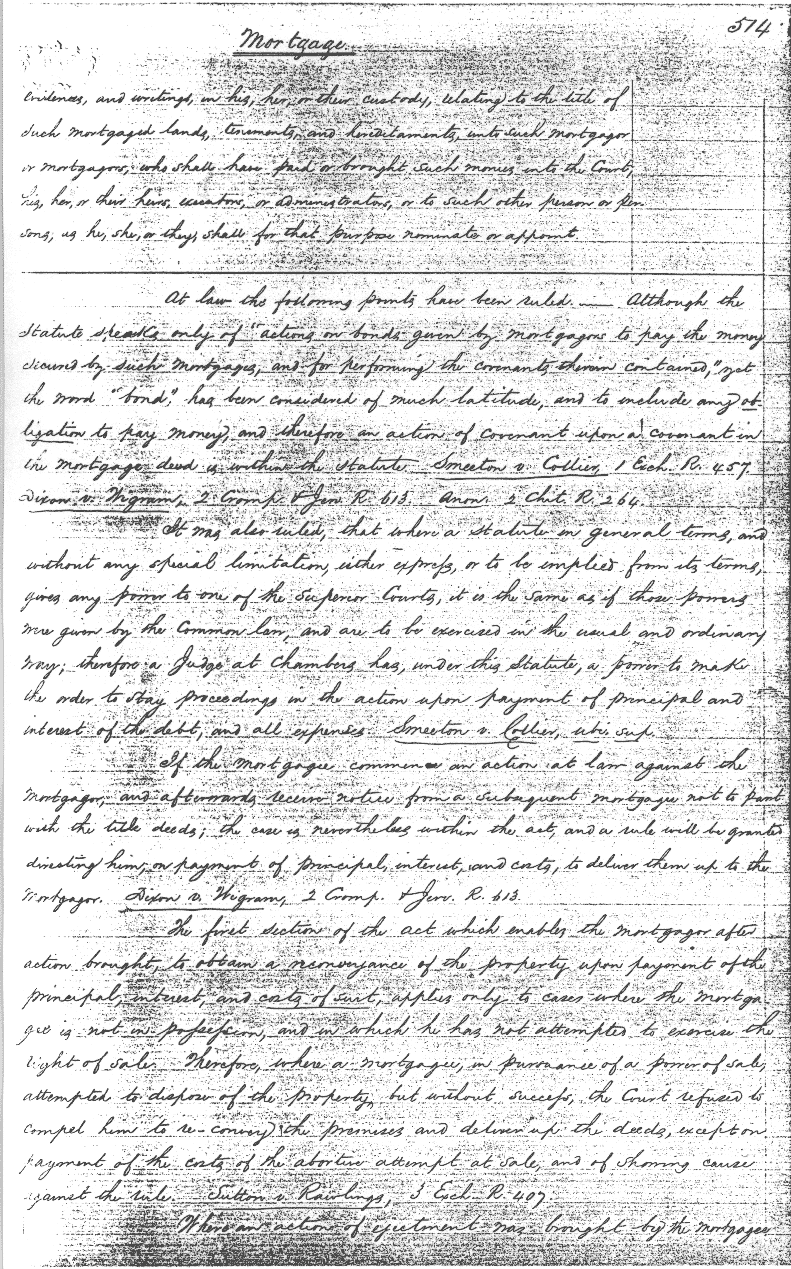 514
Mortgage.
evidences, and writings, in his, her, or their custody, relating to the title of
such mortgaged lands, tenements, and hereditaments, unto such mortgagor
or mortgagors, who shall have paid or brought such monies into the Court,
his, her, or their heirs, executors, or administrators, or to such other person or per-
sons, as he, she, or they, shall for that purpose nominate or appoint.
At law the following points have been ruled. — Although the
Statute speaks only of "actions on bonds given by mortgagors to pay the money
secured by such mortgages, and for performing the covenants therein contained," yet
the word "bond," has been considered of much latitude, and to include any ob-
ligation to pay money, and therefore an action of covenant upon a covenant in
the mortgage deed is within the statute. Smeeton v. Collier, 1 Exch. R. 457.
Dixon v. Wigram, 2 Cromp. & Jerv. R. 613. Anon. 2 Chit. R. 264.
It was also ruled, that where a statute in general terms, and
without any special limitation, either express, or to be implied from its terms,
gives any power to one of the Superior Courts, it is the same as if those powers
were given by the Common law, and are to be exercised in the usual and ordinary
way; therefore a Judge at Chambers has, under this Statute, a power to make
the order to stay proceedings in the action upon payment of principal and
interest of the debt, and all expenses. Smeeton v. Collier, ubi. sup.
If the mortgagee commence an action at law against the
mortgagor, and afterwards receive notice from a subsequent mortgagee not to part
with the title deeds; the case is nevertheless within the act, and a rule will be granted
directing him, on payment of principal, interest, and costs, to deliver them up to the
mortgagor. Dixon v. Wigram, 2 Cromp. & Jerv. R. 613.
The first section of the act which enables the mortgagor after
action brought, to obtain a reconveyance of the property upon payment of the
principal, interest, and costs of suit, applies only to cases where the mortga-
gee is not in possession, and in which he has not attempted to exercise the
right of sale. Therefore, where a mortgagee, in pursuance of a power of sale,
attempted to dispose of the property, but without success, the Court refused to
compel him to re-convey the premises and deliver up the deeds, except on
payment of the costs of the abortive attempt at sale, and of showing cause
against the rule. Sutton v. Rawlings, 3 Exch. R. 407.
Where an action of ejectment was brought by the mortgagee